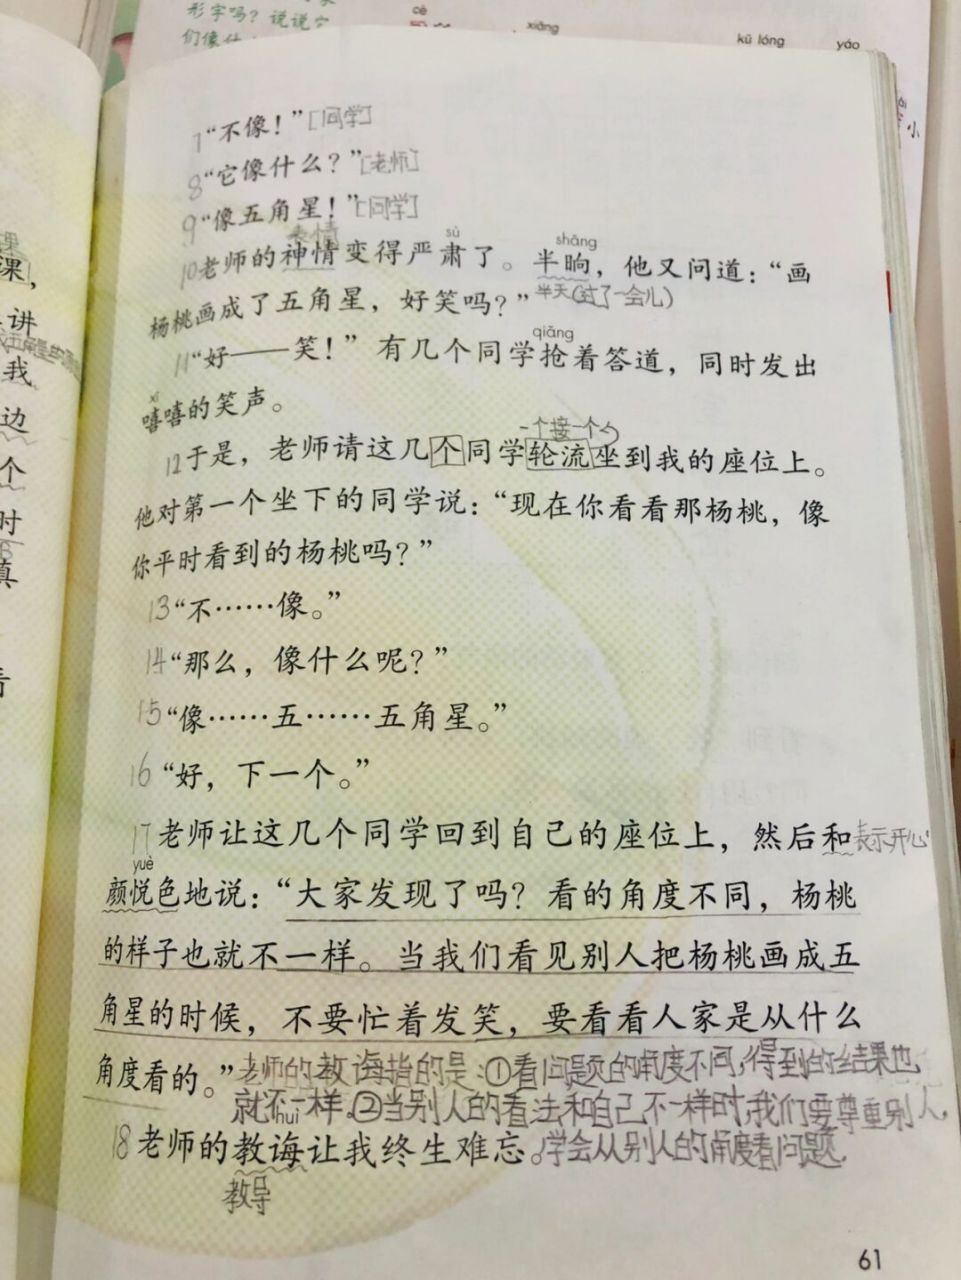 形字吗？说说它
们像什
cè
xiāng
kū lóng
yáo
小
7“不像！”[同学]
8“它像什么？”[老师]
9“像五角星！”[同学]
表情
sù
shǎng
10老师的神情变得严肃了。半晌，他又问道：“画
杨桃画成了五角星，好笑吗？”半天(过了一会儿)
qiǎng
11“好——笑！”有几个同学抢着答道，同时发出
xī
嘻嘻的笑声。
一个接一个
12于是，老师请这几个同学轮流坐到我的座位上。
他对第一个坐下的同学说：“现在你看看那杨桃，像
你平时看到的杨桃吗？”
13“不……像。”
14“那么，像什么呢？”
15“像……五……五角星。”
16“好，下一个。”
17老师让这几个同学回到自己的座位上，然后和表示开心
yuè
颜悦色地说：“大家发现了吗？看的角度不同，杨桃
的样子也就不一样。当我们看见别人把杨桃画成五
角星的时候，不要忙着发笑，要看看人家是从什么
角度看的。”老师的教诲指的是：①看问题的角度不同，得到的结果也
就不一样。②当别人的看法和自己不一样时，我们要尊重别人，
huì
18老师的教诲让我终生难忘。学会从别人的角度看问题
教导
61
课
课，
讲
我
边
个
时
真